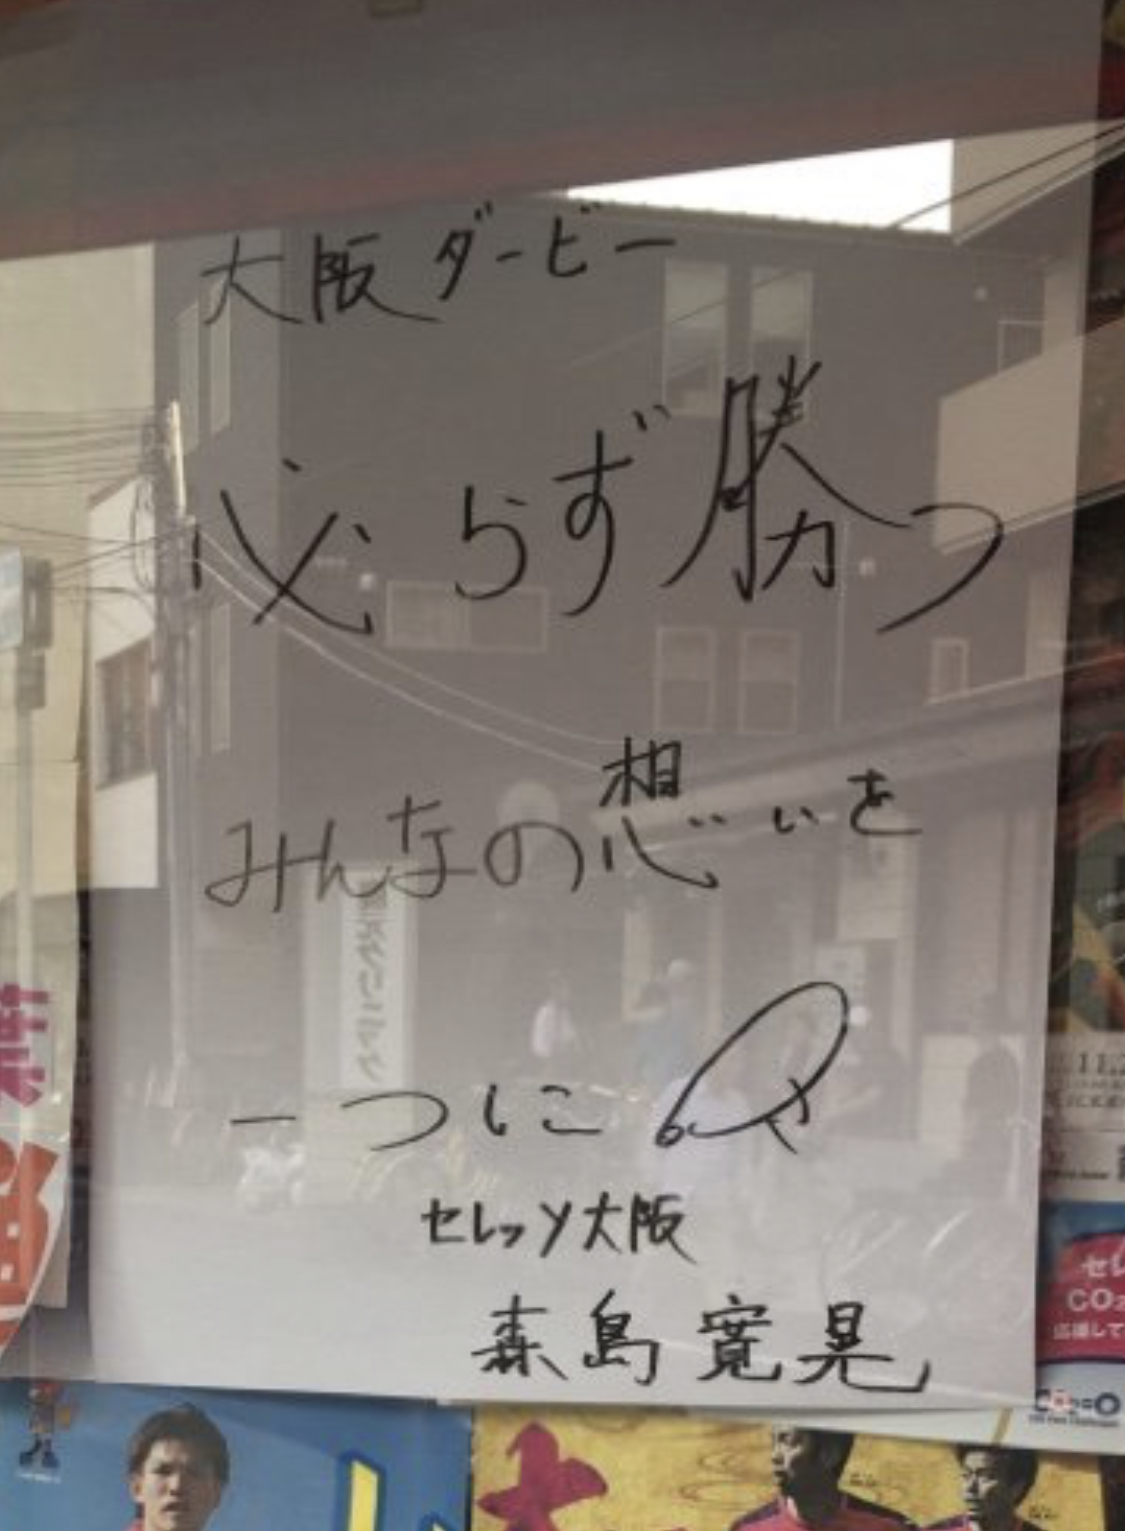 大阪ダービー
必らず勝つ
みんなの想いを
一つに
セレッソ大阪
森島寛晃
セレ
CO₂
応援して
CO₂=0